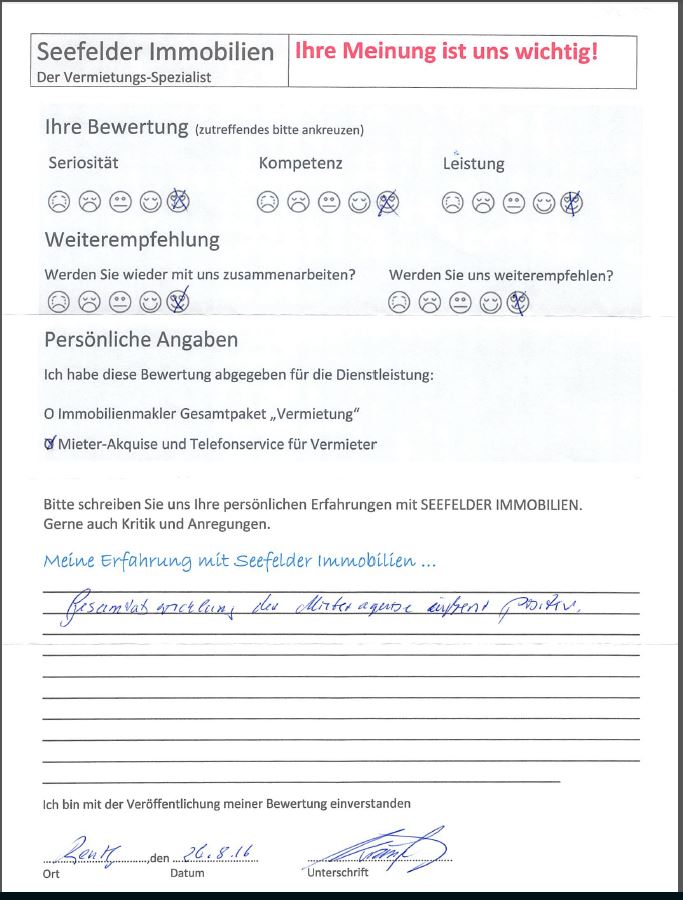 Seefelder Immobilien
Der Vermietungs-Spezialist
Ihre Meinung ist uns wichtig!
Ihre Bewertung (zutreffendes bitte ankreuzen)
Seriosität Kompetenz Leistung
Weiterempfehlung
Werden Sie wieder mit uns zusammenarbeiten? Werden Sie uns weiterempfehlen?
Persönliche Angaben
Ich habe diese Bewertung abgegeben für die Dienstleistung:
O Immobilienmakler Gesamtpaket „Vermietung“
O Mieter-Akquise und Telefonservice für Vermieter
Bitte schreiben Sie uns Ihre persönlichen Erfahrungen mit SEEFELDER IMMOBILIEN.
Gerne auch Kritik und Anregungen.
Meine Erfahrung mit Seefelder Immobilien ...
Gesamtabwicklung der Mieteraquise äußerst positiv.
Ich bin mit der Veröffentlichung meiner Bewertung einverstanden
,den 26.8.16
Ort Datum Unterschrift